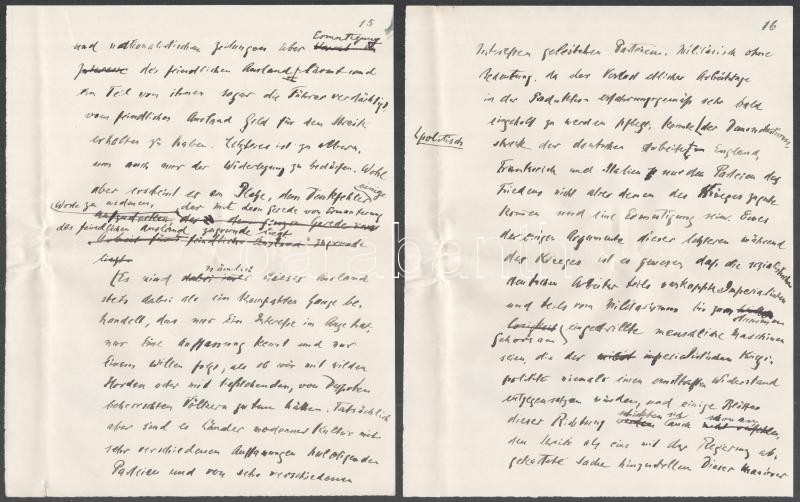 15
Ermutigung
und nationalistischen Zeitungen über
Interesse des feindlichen Ausland lärmt und
ein Teil von ihnen sogar die Führer verdächtigt
vom feindlichen Ausland Geld für den Streik
erhalten zu haben. Letzteres ist zu albern,
um auch nur der Widerlegung zu bedürfen. Wohl
aber erscheint es am Platze, dem Denkfehler einige
Worte zu widmen, der mit dem Gerede von Ermunterung
aufzudecken, der dem Gerede von
des feindlichen Ausland zugrunde liegt
feindliche Ausland zugrunde
liegt.
Es wird nämlich dabei dieses Ausland
stets dabei als ein kompaktes Ganze be-
handelt, das nur Ein Interesse im Auge hat,
nur Eine Auffassung kennt und nur
Einem Willen folge, als ob wir mit wilden
Horden oder mit tiefstehenden, von Despoten
beherrschten Völkern zu tun hätten. Tatsächlich
aber sind es Länder moderner Kultur mit
sehr verschiedenen Auffassungen huldigenden
Parteien und von sehr verschiedenen
16
Interessen geleiteten Parteien. Militärisch ohne
Bedeutung, da der Verlust etlicher Arbeitstage
in der Produktion erfahrungsgemäß sehr bald
eingeholt zu werden pflegt, konnte der Demonstrations-
politisch
streik der deutschen Arbeiter in England,
Frankreich und Italien nur den Parteien des
Friedens nicht aber denen des Krieges zugute
kommen und eine Ermutigung sein. Eines
der Argumente dieser letzteren während
des Krieges ist es gewesen, daß die sozialistischen
deutschen Arbeiter teils verkappte Imperialisten
und teils vom Militarismus bis zum
Gehorsam eingedrillte menschliche Maschinen
seien, die der imperialistischen Kriegs-
politik niemals einen ernsthaften Widerstand
entgegensetzen würden, und einige Blätter
dieser Richtung auch
den Streik als eine mit der Regierung ab-
gekartete Sache hinzustellen. Dieser Manöver
darabanth